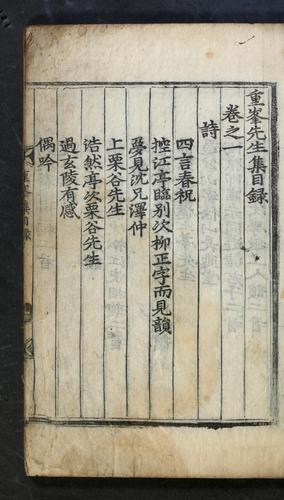 重峯先生集目錄
卷之一
詩
四言春祝
控江亭臨別次柳正字而見韻
夢見沈兄澤仲
上栗谷先生
浩然亭次栗谷先生
過玄陵有感
偶吟